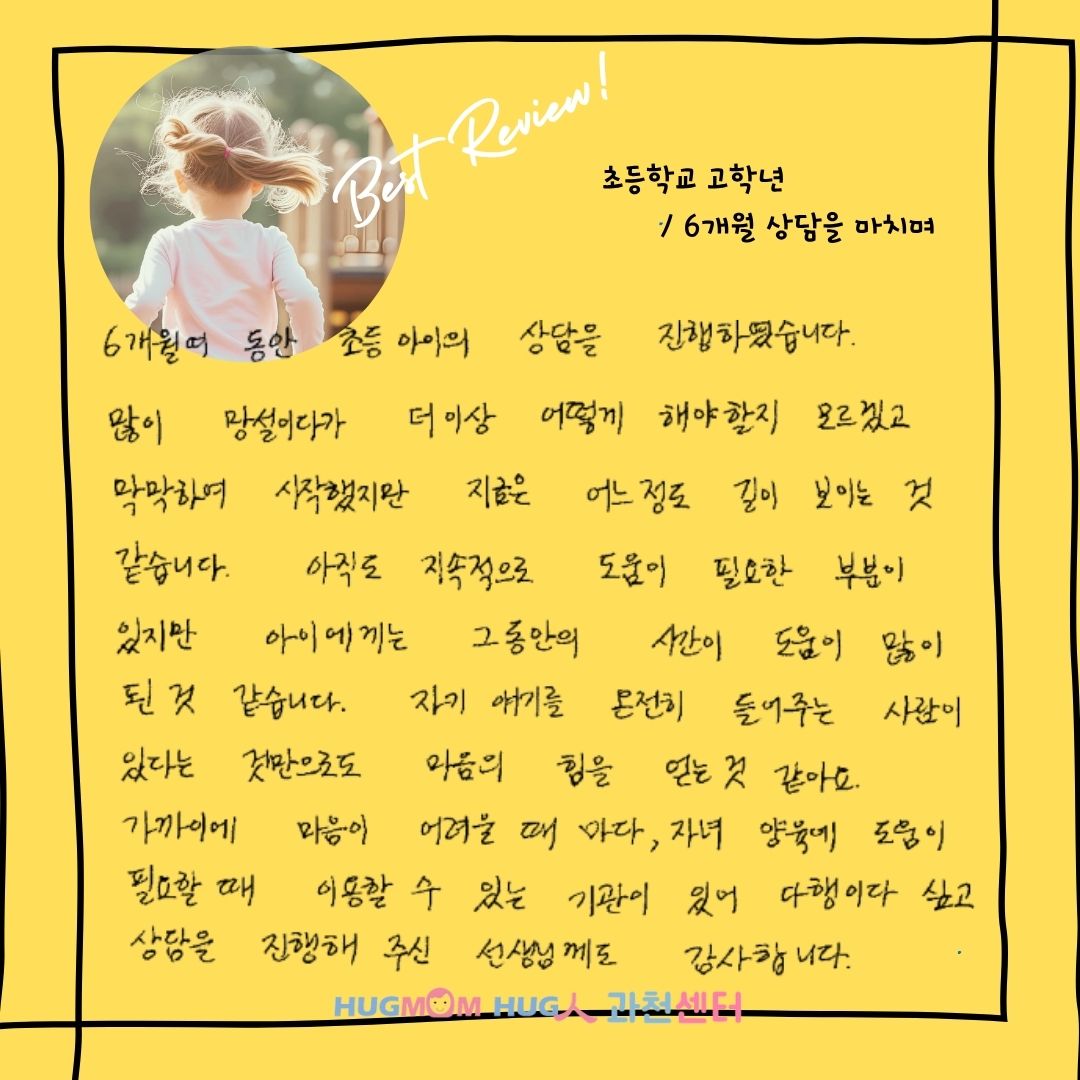 Best Review!
초등학교 고학년
/ 6개월 상담을 마치며
6개월여 동안 초등 아이의 상담을 진행하였습니다.
많이 망설이다가 더 이상 어떻게 해야할지 모르겠고
막막하여 시작했지만 지금은 어느정도 길이 보이는 것
같습니다. 아직도 지속적으로 도움이 필요한 부분이
있지만 아이에게는 그동안의 시간이 도움이 많이
된 것 같습니다. 자기 얘기를 온전히 들어주는 사람이
있다는 것만으로도 마음의 힘을 얻는 것 같아요.
가까이에 마음이 어려울 때 마다, 자녀 양육에 도움이
필요할 때 이용할 수 있는 기관이 있어 다행이다 싶고
상담을 진행해 주신 선생님께도 감사합니다.
HUGMOM HUG人 과천센터